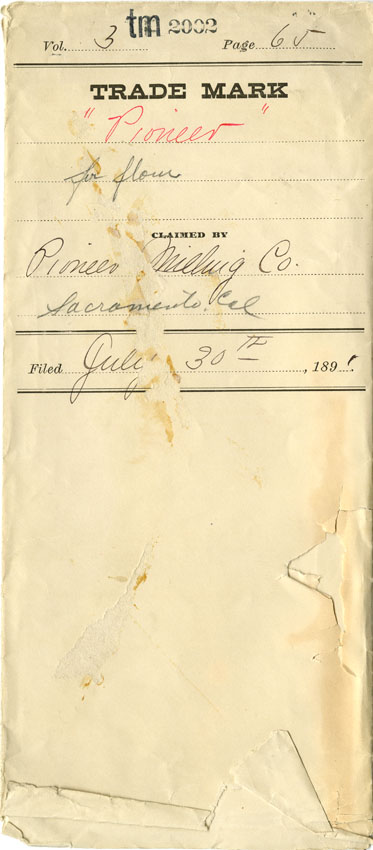 tm 2002
Vol. 3 Page 65
TRADE MARK
"Pioneer"
for flour
CLAIMED BY
Pioneer Milling Co.
Sacramento, Cal
Filed July 30TH, 1891.